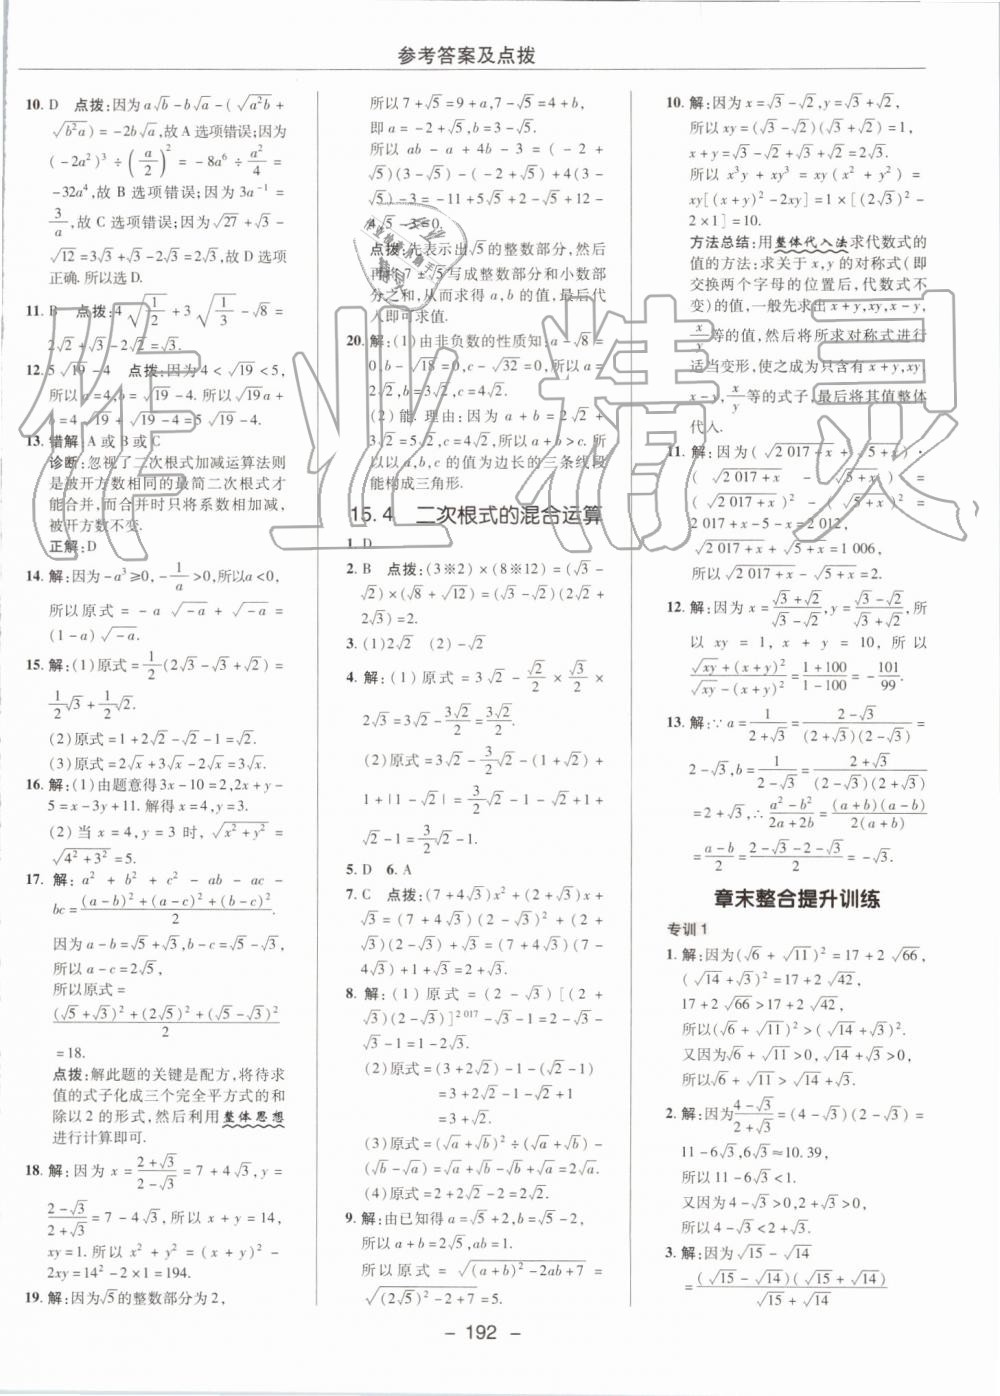 参考答案及点拨
10. D 点拨:因为a√b-b√a-(√a²b+
√b²a)=-2b√a,故A选项错误;因为
(-2a²)³÷(a/2)²=-8a⁶÷a²/4=
-32a⁴,故B选项错误;因为3a⁻¹=
3/a,故C选项错误;因为√27+√3-
√12=3√3+√3-2√3=2√3,故D选项
正确.所以选D.
11. B 点拨:4√(1/2)+3√(1/3)-√8=
2√2+√3-2√2=√3.
12. 5√19-4 点拨:因为4<√19<5,
所以a=4,b=√19-4.所以√19a+
b=4√19+√19-4=5√19-4.
13. 错解 A或B或C
诊断:忽视了二次根式加减运算法则
是被开方数相同的最简二次根式才
能合并,而合并时只将系数相加减,
被开方数不变.
正解:D
14. 解:因为-a³≥0,-1/a>0,所以a<0,
所以原式=-a√-a+√-a=
(1-a)√-a.
15. 解:(1)原式=1/2(2√3-√3+√2)=
1/2√3+1/2√2.
(2)原式=1+2√2-√2-1=√2.
(3)原式=2√x+3√x-2√x=3√x.
16. 解:(1)由题意得3x-10=2,2x+y-
5=x-3y+11.解得x=4,y=3.
(2)当x=4,y=3时,√x²+y²=
√4²+3²=5.
17. 解:a²+b²+c²-ab-ac-
bc=((a-b)²+(a-c)²+(b-c)²)/2.
因为a-b=√5+√3,b-c=√5-√3,
所以a-c=2√5,
所以原式=
((√5+√3)²+(2√5)²+(√5-√3)²)/2
=18.
点拨:解此题的关键是配方,将待求
值的式子化成三个完全平方式的和
除以2的形式,然后利用整体思想
进行计算即可.
18. 解:因为x=(2+√3)/(2-√3)=7+4√3,y=
(2-√3)/(2+√3)=7-4√3,所以x+y=14,
xy=1.所以x²+y²=(x+y)²-
2xy=14²-2×1=194.
19. 解:因为√5的整数部分为2,
所以7+√5=9+a,7-√5=4+b,
即a=-2+√5,b=3-√5.
所以ab-a+4b-3=(-2+
√5)(3-√5)-(-2+√5)+4(3-
√5)-3=-11+5√5+2-√5+12-
4√5-3=0.
点拨:先表示出√5的整数部分,然后
再将7±√5写成整数部分和小数部
分之和,从而求得a,b的值,最后代
入即可求值.
20. 解:(1)由非负数的性质知:a-√8=
0,b-√18=0,c-√32=0,所以a=
2√2,b=3√2,c=4√2.
(2)能.理由:因为a+b=2√2+
3√2=5√2>4√2,所以a+b>c.所
以以a,b,c的值为边长的三条线段
能构成三角形.
15.4 二次根式的混合运算
1. D
2. B 点拨:(3※2)×(8※12)=(√3-
√2)×(√8+√12)=(√3-√2)(2√2+
2√3)=2.
3. (1)2√2 (2)-√2
4. 解:(1)原式=3√2-√2/2×√3/2×
2√3=3√2-3√2/2=3√2/2.
(2)原式=3√2-3/2√2-(1+√2)+
1+|1-√2|=3/2√2-1-√2+1+
√2-1=3/2√2-1.
5. D 6. A
7. C 点拨:(7+4√3)x²+(2+√3)x+
√3=(7+4√3)(2-√3)²+(2+
√3)(2-√3)+√3=(7+4√3)(7-
4√3)+1+√3=2+√3.
8. 解:(1)原式=(2-√3)[(2+
√3)(2-√3)]²⁰¹⁷-√3-1=2-√3-
√3-1=1-2√3.
(2)原式=(3+2√2)-1-(√2-1)
=3+2√2-1-√2+1
=3+√2.
(3)原式=(√a+√b)²÷(√a+√b)-
(√b-√a)=√a+√b-√b+√a=2√a.
(4)原式=2+2√2-2=2√2.
9. 解:由已知得a=√5+2,b=√5-2,
所以a+b=2√5,ab=1.
所以原式=√(a+b)²-2ab+7=
√(2√5)²-2+7=5.
10. 解:因为x=√3-√2,y=√3+√2,
所以xy=(√3-√2)(√3+√2)=1,
x+y=√3-√2+√3+√2=2√3.
所以x³y+xy³=xy(x²+y²)=
xy[(x+y)²-2xy]=1×[(2√3)²-
2×1]=10.
方法总结:用整体代入法求代数式的
值的方法:求关于x,y的对称式(即
交换两个字母的位置后,代数式不
变)的值,一般先求出x+y,xy,x-y,
x/y等的值,然后将所求对称式进行
适当变形,使之成为只含有x+y,xy,
x-y,x/y等的式子,最后将其值整体
代入.
11. 解:因为(√2 017+x+√5+x)·
(√2 017+x-√5+x)=
(√2 017+x)²-(√5+x)²=
2 017+x-5-x=2 012,
√2 017+x+√5+x=1 006,
所以√2 017+x-√5+x=2.
12. 解:因为x=(√3+√2)/(√3-√2),y=(√3-√2)/(√3+√2),所
以xy=1,x+y=10,所以
(√xy+(x+y)²)/(√xy-(x+y)²)=(1+100)/(1-100)=-101/99.
13. 解:∵a=1/(2+√3)=(2-√3)/((2+√3)(2-√3))=
2-√3,b=1/(2-√3)=(2+√3)/((2-√3)(2+√3))
=2+√3,∴(a²-b²)/(2a+2b)=((a+b)(a-b))/(2(a+b))
=(a-b)/2=(2-√3-2-√3)/2=-√3.
章末整合提升训练
专训1
1. 解:因为(√6+√11)²=17+2√66,
(√14+√3)²=17+2√42,
17+2√66>17+2√42,
所以(√6+√11)²>(√14+√3)².
又因为√6+√11>0,√14+√3>0,
所以√6+√11>√14+√3.
2. 解:因为(4-√3)/(2+√3)=(4-√3)(2-√3)=
11-6√3,6√3≈10.39,
所以11-6√3<1.
又因为4-√3>0,2+√3>0,
所以4-√3<2+√3.
3. 解:因为√15-√14
=((√15-√14)(√15+√14))/(√15+√14)
- 192 -
作业精灵